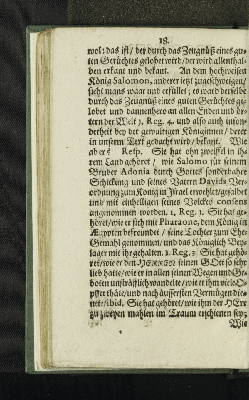 18.
wol: das ist/ der durch das Zeugnüß eines gu-
ten Gerüchtes gelobet wird/ der wird allenthal-
ben erkant und bekant. An dem hochweisen
König Salomon, anderer ietzt zugeschweigen/
siehet mans waar und erfüllet; es ward derselbe
durch das Zeugnüß eines guten Gerüchtes ge-
lobet und dannenhero an allen Enden und ör-
tern der Welt 1. Reg. 4. und also auch inson-
derheit bey der gewaltigen Königinnen/ derer
in unserm Text gedacht wird/ bekant. Wie
aber: Resp. Sie hat ohn zweiffel in ih-
rem Land gehöret/ wie Salomo für seinem
Bruder Adonia durch Gottes sonderbahre
Schickung und seines Vatern Davids Ver-
ordnung zum König in Israel erwehlet/ gesalbet
und mit einhelligen seines Volckes consens
angenommen worden. 1. Reg. 1. Sie hat ge-
höret/ wie er sich mit Pharaone, dem König in
Ægypten befreundet/ seine Tochter zum Ehe-
Gemahl genommen/ und das Königlich Bey-
lager mit ihr gehalten. 1. Reg. 3. Sie hat gehö-
ret/ wie er den HERREN seinen GOtt so sehr
lieb hatte/ wie er in allen seinen Wegen und Ge-
boten unsträfflich wandelte/ wie er ihm viele O-
pffer thäte/ und nach äussersten Vermügen die-
nete/ ibid. Sie hat gehöret/ wie ihm der HErr
zu zweyen mahlen im Traum erschienen sey;
Wie